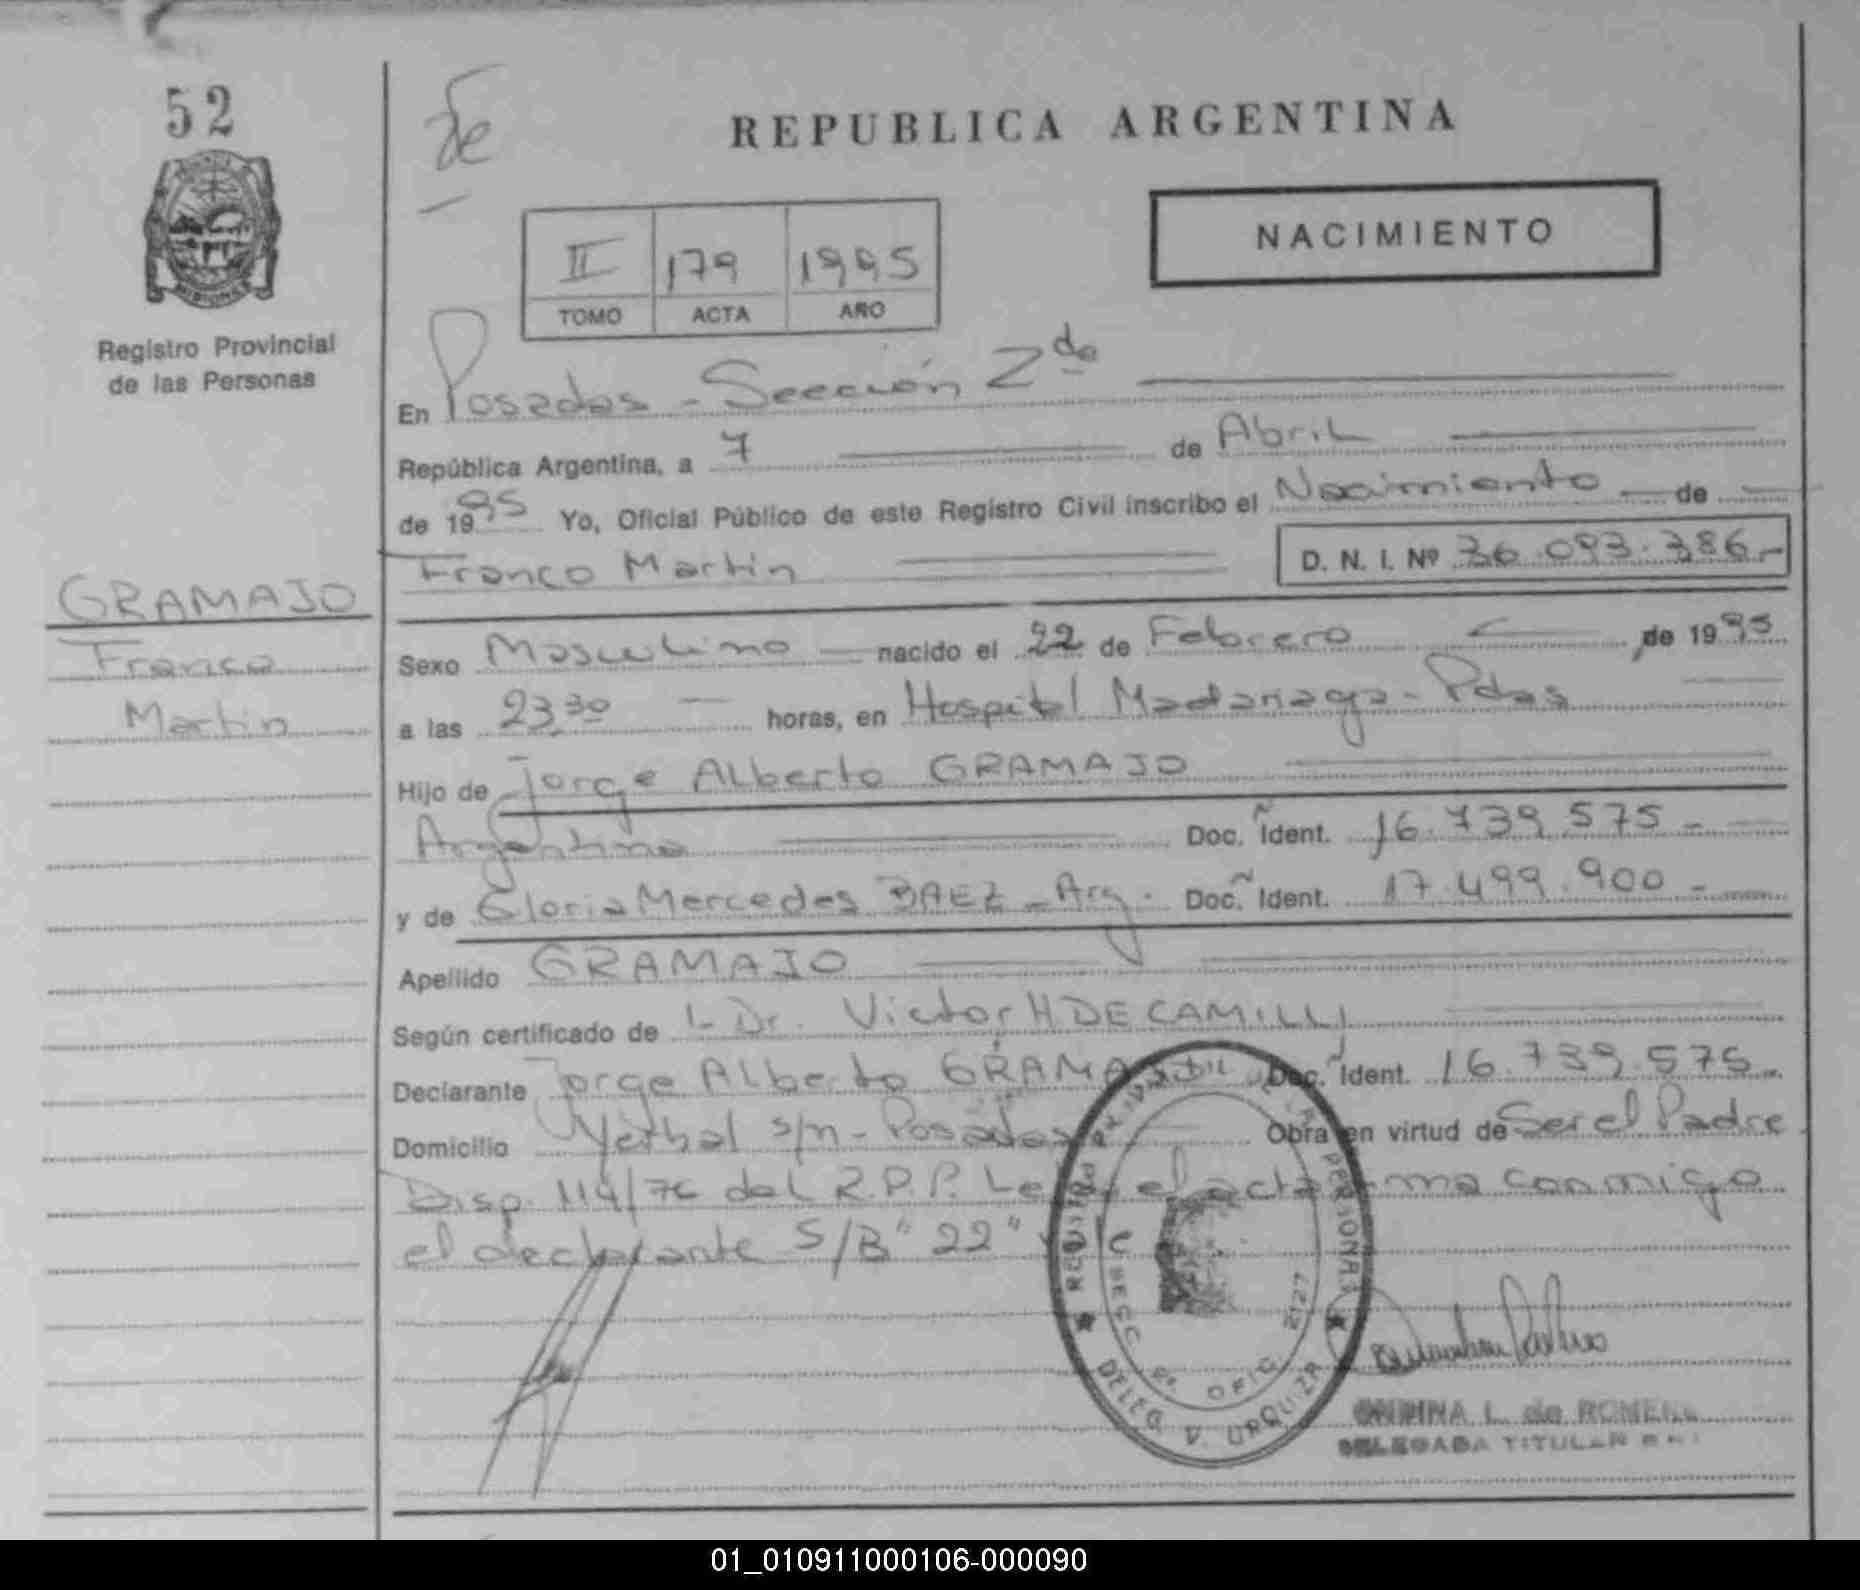 52
REPUBLICA ARGENTINA
NACIMIENTO
II 179 1995
TOMO ACTA AÑO
MISIONES
Registro Provincial
de las Personas
En Posadas - Sección 2da
República Argentina, a 7 de Abril
de 1995 Yo, Oficial Público de este Registro Civil inscribo el Nacimiento de
Franco Martin D. N. I. Nº 36.093.386.-
GRAMAJO
Franco
Martin
Sexo Masculino nacido el 22 de Febrero de 1995
a las 23.30 horas, en Hospital Madariaga - Pdas
Hijo de Jorge Alberto GRAMAJO
Argentino Doc. Ident. 16.739.575 -
y de Gloria Mercedes BAEZ - Arg. Doc. Ident. 17.499.900 -
Apellido GRAMAJO
Según certificado de L Dr. Victor H DE CAMILLI
Declarante Jorge Alberto GRAMAJO Doc. Ident. 16.739.575.
Domicilio Yerbal s/n - Posadas Obra en virtud de Ser el Padre
Disp. 114/76 del R.P.P. el acta conmigo
el declarante S/B "22" vale
SECC 2º OFIC 2127
DELEG V. URQUIZA
L. de ROMERO
DELEGADA TITULAR
01_010911000106-000090